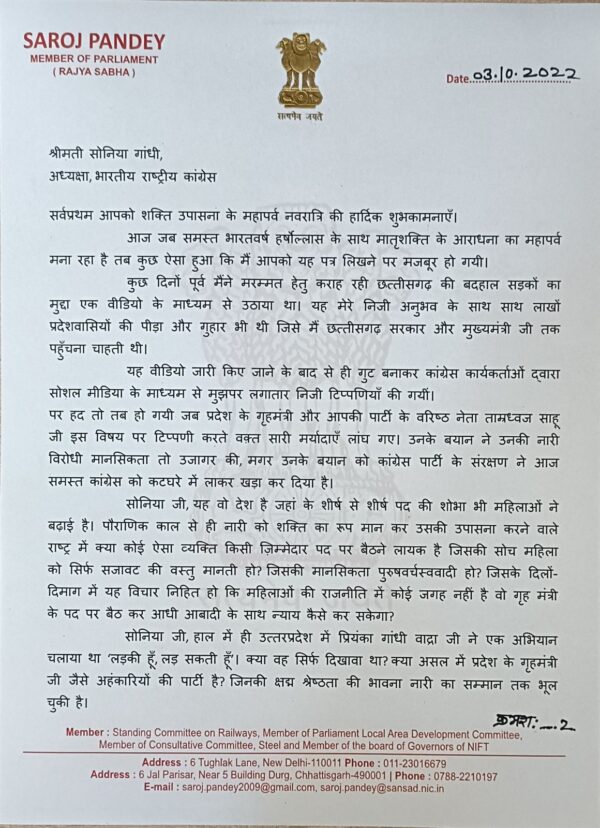 SAROJ PANDEY
MEMBER OF PARLIAMENT
( RAJYA SABHA )
सत्यमेव जयते
Date 03.10.2022
श्रीमती सोनिया गांधी,
अध्यक्षा, भारतीय राष्ट्रीय कांग्रेस
सर्वप्रथम आपको शक्ति उपासना के महापर्व नवरात्रि की हार्दिक शुभकामनाएँ।
आज जब समस्त भारतवर्ष हर्षोल्लास के साथ मातृशक्ति के आराधना का महापर्व
मना रहा है तब कुछ ऐसा हुआ कि मैं आपको यह पत्र लिखने पर मजबूर हो गयी।
कुछ दिनों पूर्व मैंने मरम्मत हेतु कराह रही छत्तीसगढ़ की बदहाल सड़कों का
मुद्दा एक वीडियो के माध्यम से उठाया था। यह मेरे निजी अनुभव के साथ साथ लाखों
प्रदेशवासियों की पीड़ा और गुहार भी थी जिसे मैं छत्तीसगढ़ सरकार और मुख्यमंत्री जी तक
पहुँचना चाहती थी।
यह वीडियो जारी किए जाने के बाद से ही गुट बनाकर कांग्रेस कार्यकर्ताओं द्वारा
सोशल मीडिया के माध्यम से मुझपर लगातार निजी टिप्पणियाँ की गयीं।
पर हद तो तब हो गयी जब प्रदेश के गृहमंत्री और आपकी पार्टी के वरिष्ठ नेता ताम्रध्वज साहू
जी इस विषय पर टिप्पणी करते वक्त सारी मर्यादाएँ लांघ गए। उनके बयान ने उनकी नारी
विरोधी मानसिकता तो उजागर की, मगर उनके बयान को कांग्रेस पार्टी के संरक्षण ने आज
समस्त कांग्रेस को कटघरे में लाकर खड़ा कर दिया है।
सोनिया जी, यह वो देश है जहां के शीर्ष से शीर्ष पद की शोभा भी महिलाओं ने
बढ़ाई है। पौराणिक काल से ही नारी को शक्ति का रूप मान कर उसकी उपासना करने वाले
राष्ट्र में क्या कोई ऐसा व्यक्ति किसी ज़िम्मेदार पद पर बैठने लायक है जिसकी सोच महिला
को सिर्फ सजावट की वस्तु मानती हो? जिसकी मानसिकता पुरुषवर्चस्ववादी हो? जिसके दिलों-
दिमाग में यह विचार निहित हो कि महिलाओं की राजनीति में कोई जगह नहीं है वो गृह मंत्री
के पद पर बैठ कर आधी आबादी के साथ न्याय कैसे कर सकेगा?
सोनिया जी, हाल में ही उत्तरप्रदेश में प्रियंका गांधी वाद्रा जी ने एक अभियान
चलाया था 'लड़की हूँ, लड़ सकती हूँ'। क्या वह सिर्फ दिखावा था? क्या असल में प्रदेश के गृहमंत्री
जी जैसे अहंकारियों की पार्टी है? जिनकी क्षद्म श्रेष्ठता की भावना नारी का सम्मान तक भूल
चुकी है।
क्रमश: ...2
Member : Standing Committee on Railways, Member of Parliament Local Area Development Committee,
Member of Consultative Committee, Steel and Member of the board of Governors of NIFT
Address : 6 Tughlak Lane, New Delhi-110011 Phone : 011-23016679
Address : 6 Jal Parisar, Near 5 Building Durg, Chhattisgarh-490001 | Phone : 0788-2210197
E-mail : saroj.pandey2009@gmail.com, saroj.pandey@sansad.nic.in